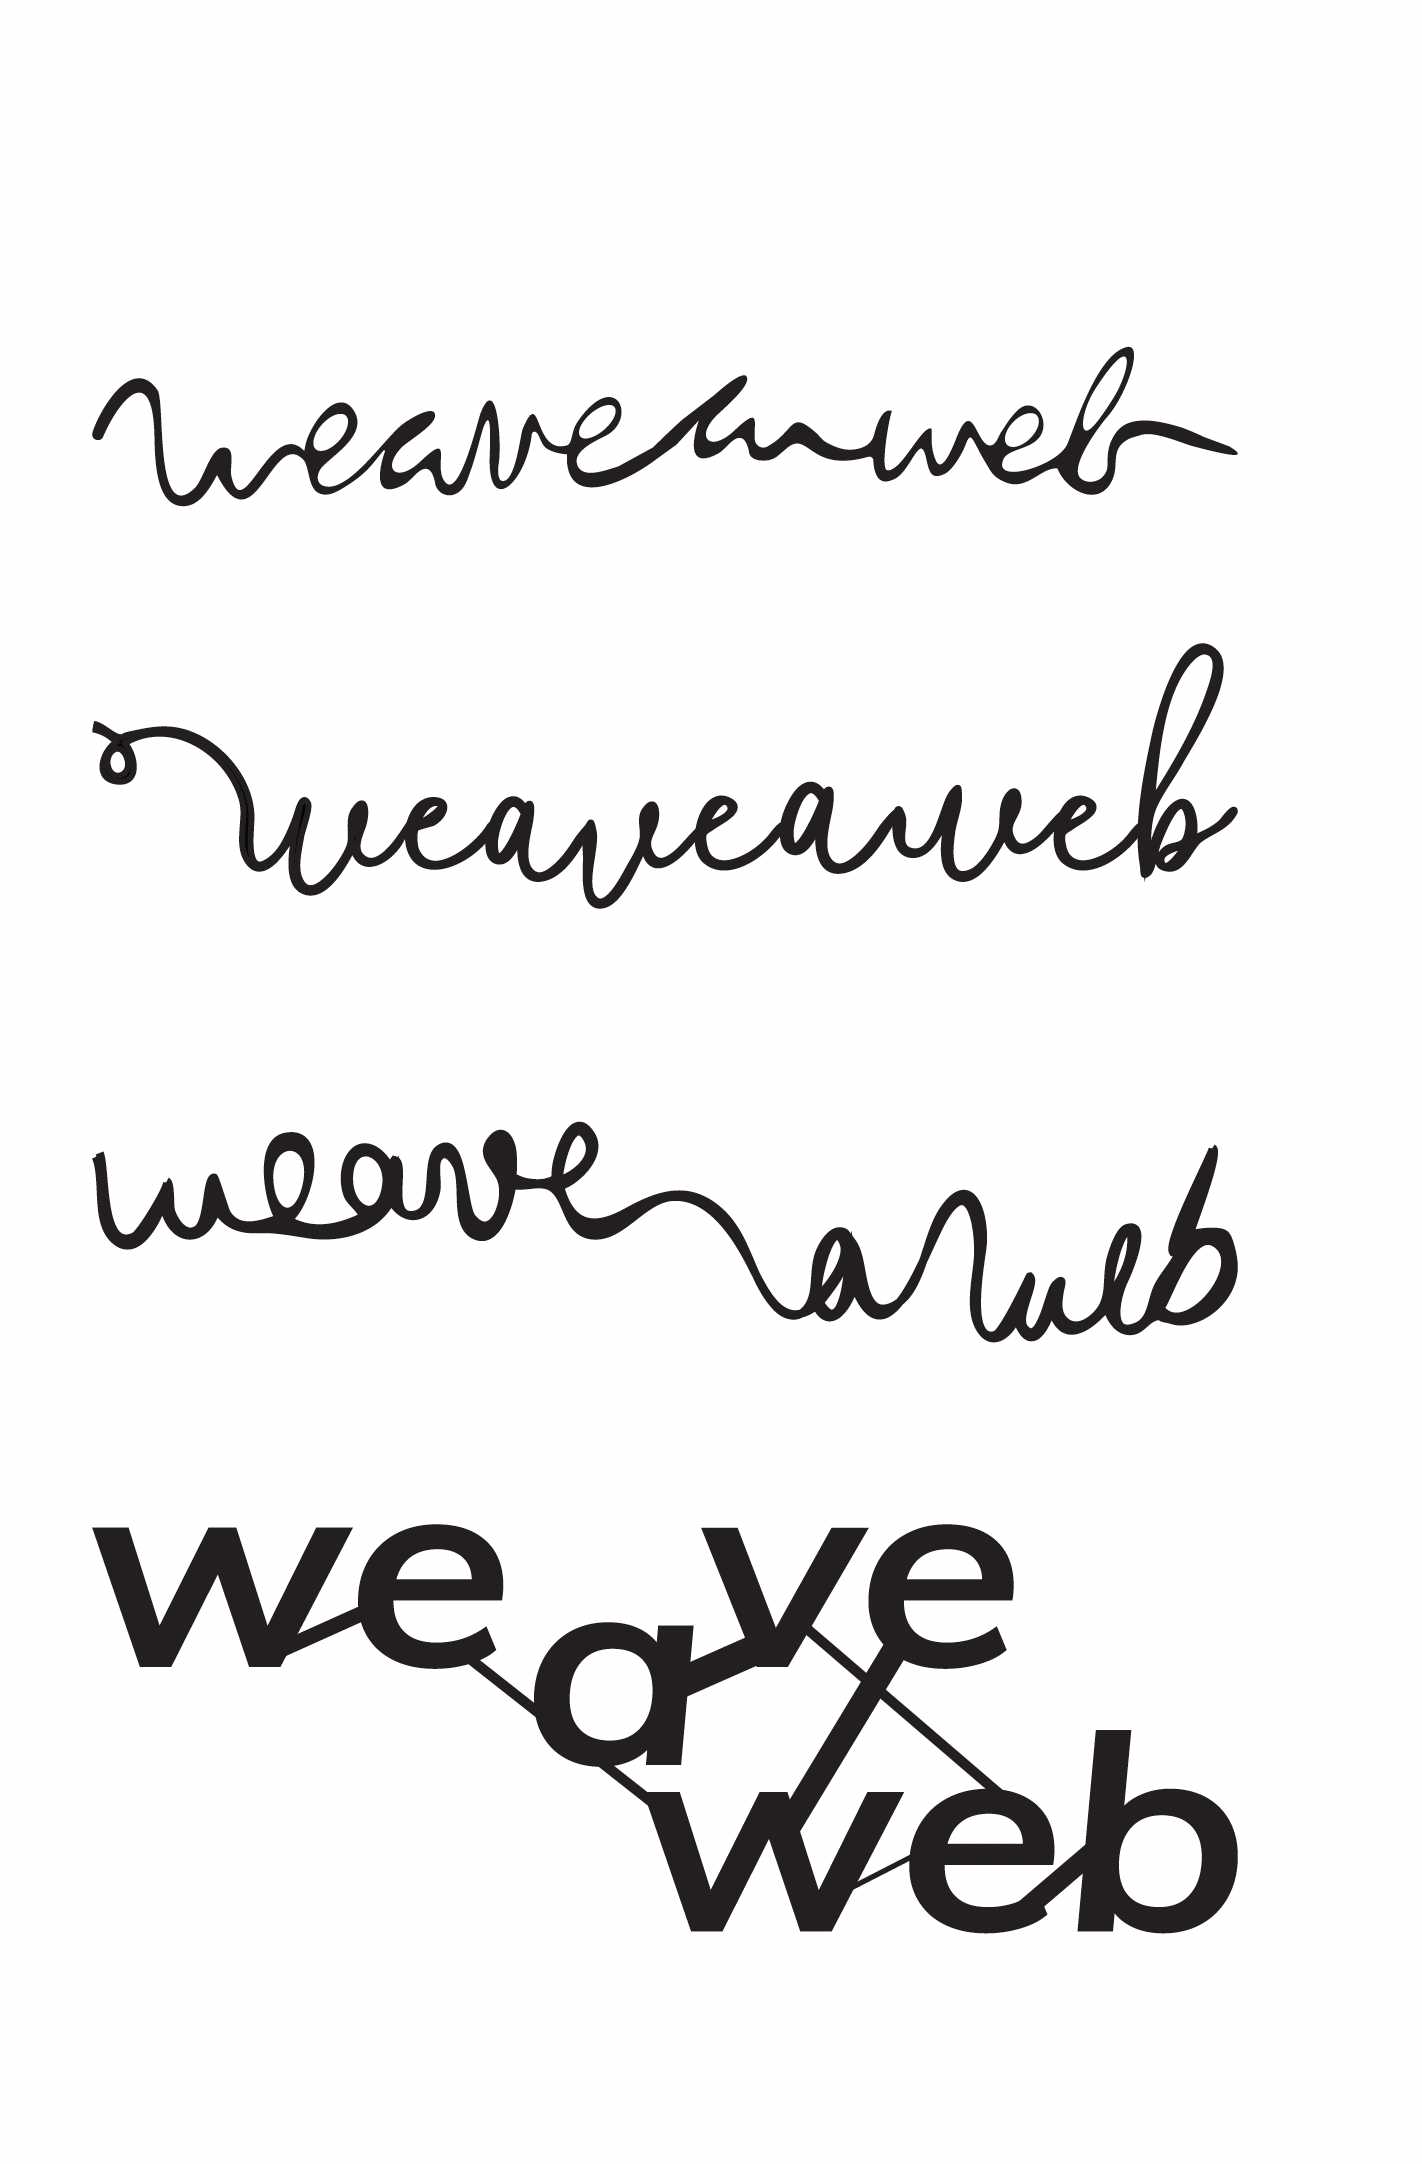 weaveaweb
weaveaweb
weave a web
weave
a
web